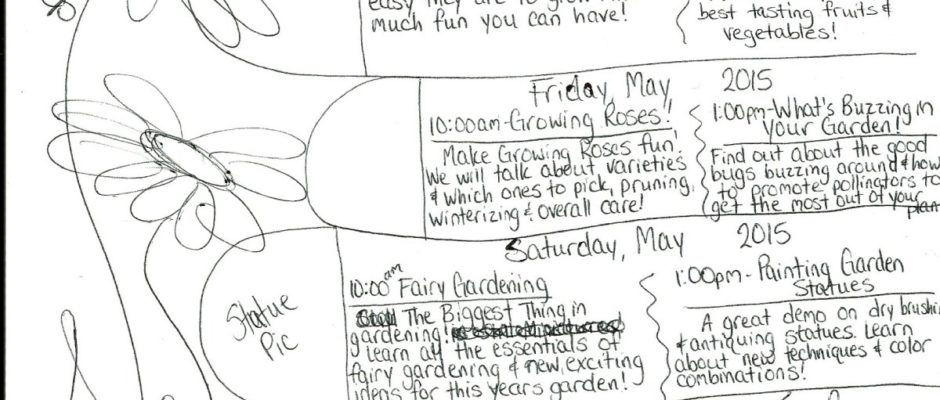 easy they are to grow
much fun you can have!
best tasting fruits &
vegetables!
Friday, May 2015
10:00am-Growing Roses!
Make Growing Roses fun!
We will talk about varieties
& which ones to pick, pruning,
winterizing & overall care!
1:00pm-What's Buzzing in
your Garden!
Find out about the good
bugs buzzing around & how
to promote pollinators to
get the most out of your
plan
Saturday, May 2015
10:00am Fairy Gardening
The Biggest Thing in
gardening!
Learn all the essentials of
fairy gardening & new, exciting
ideas for this years garden!
1:00pm- Painting Garden
Statues
A great demo on dry brushi
& antiquing statues. Learn
about new techniques & color
combinations!
Statue
Pic